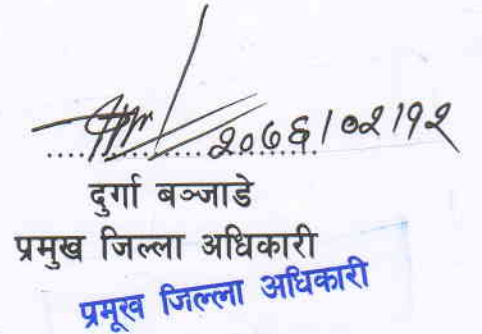 २०७६/०२/१२
दुर्गा बञ्जाडे
प्रमुख जिल्ला अधिकारी
प्रमूख जिल्ला अधिकारी